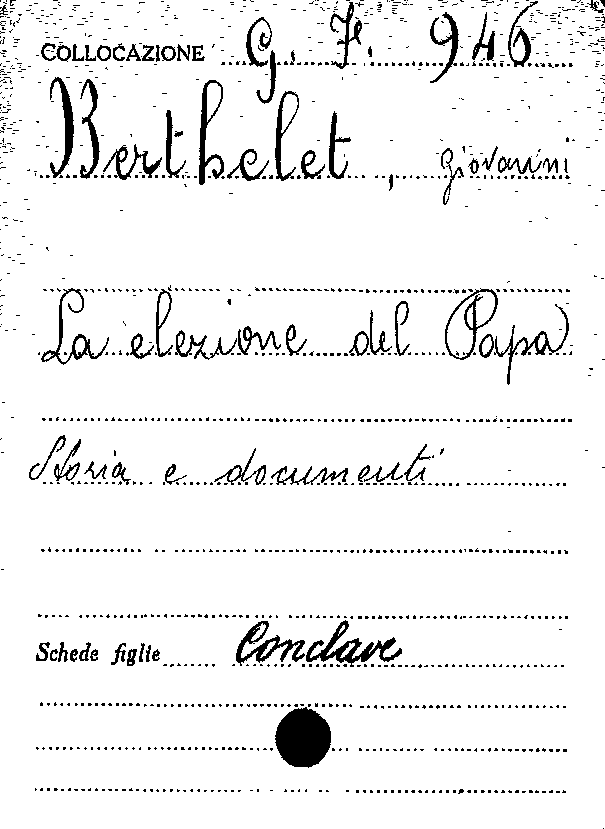 COLLOCAZIONE G. F. 946
Berthelet, Giovanni
La elezione del Papa
Storia e documenti
Schede figlie Conclave